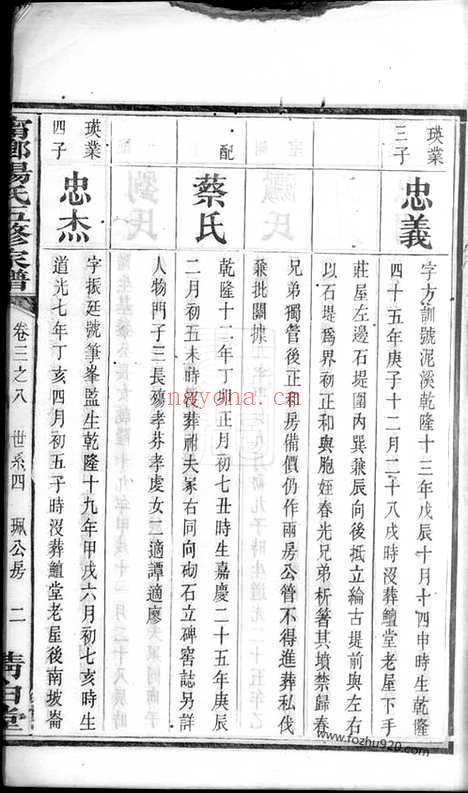 瑛業
三子
忠義
字方訓號泥溪乾隆十三年戊辰十月十四申時生乾隆
四十五年庚子十二月二十八戌時沒葬鱣堂老屋下手
莊屋左邊石堤圍內巽兼辰向後抵立綸古堤前與左右
以石堤爲界初正和與胞姪春光兄弟析箸其墳禁歸春
兄弟獨管後正和房備價仍作兩房公管不得進葬私伐
乗批關據
配
蔡氏
乾隆十二年丁卯正月初七丑時生嘉慶二十五年庚辰
二月初五未時沒葬祔夫冢右同向砌石立碑窑誌另詳
人物門子三長殤孝芬孝虔女二適譚適廖
瑛業
四子
忠杰
字振廷號筆峯監生乾隆十九年甲戌六月初七亥時生
道光七年丁亥四月初五子時沒葬鱣堂老屋後南坡崙
甯鄉湯氏五修家譜
卷三之八
世系四
珮公房
二
清白堂
nayona.cn
www.fozhu920.com